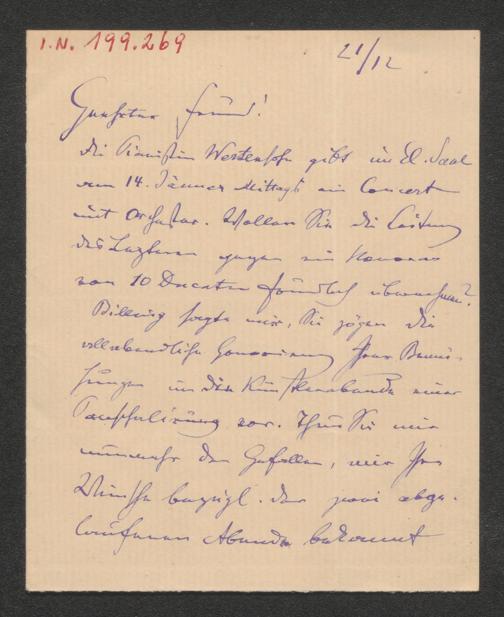 I.N. 199.269
21/12
Geehrter Freund!
Die Pianistin gibt im kl. Saal
am 14. Jänner Mittags ein Concert
mit Orchester. Wollen Sie die Leitung
des Letzteren gegen ein Honorar
von 10 Ducaten freundlich übernehmen?
Billing sagte mir, Sie zögen die
allabendliche Honorirung Ihrer Bemü-
hungen um die Künstlerabende einer
Pauschalirung vor. Thun Sie mir
nunmehr den Gefallen, mir Ihre
Wünsche bezügl. der zwei abge-
laufenen Abende bekannt